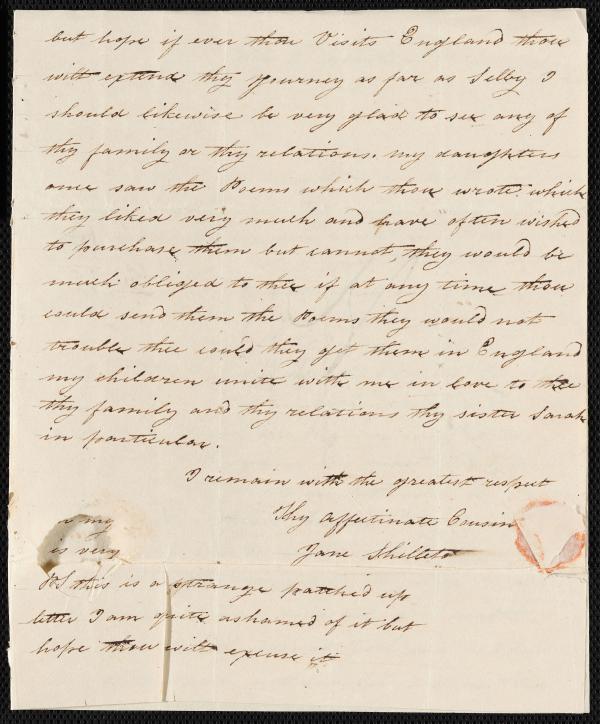 but hope if ever thou Visits England thou
wilt extend thy journey as far as Selby I
should likewise be very glad to see any of
thy family or thy relations. my daughters
once saw the Poems which thou wrote. which
they liked very much and have often wished
to purchase them but cannot, they would be
much obliged to thee if at any time thou
could send them the Poems they would not
trouble thee could they get them in England
my children unite with me in love to thee
thy family and thy relations thy sister Sarah
in particular.
I remain with the greatest respect
Thy affectinate Cousin
Jane Shilleto
my
is very
PS this is a strange patched up
letter I am quite ashamed of it but
hope thou wilt excuse it